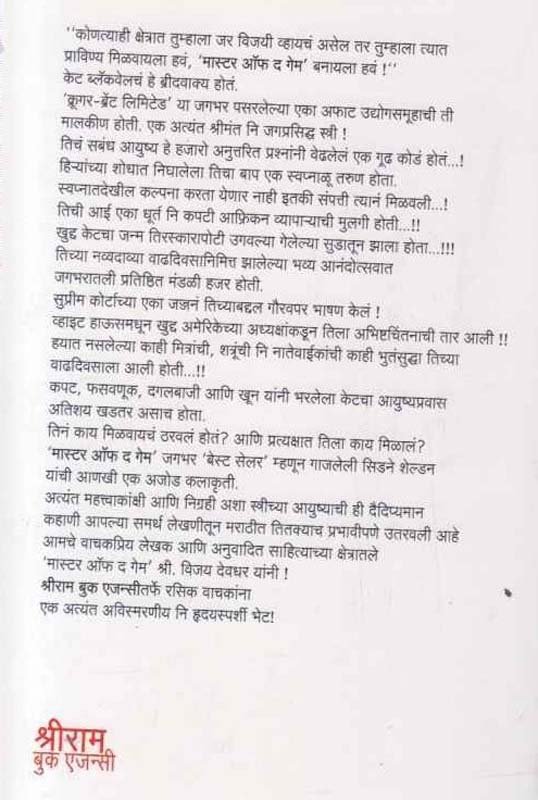 "कोणत्याही क्षेत्रात तुम्हाला जर विजयी व्हायचं असेल तर तुम्हाला त्यात
प्राविण्य मिळवायला हवं, 'मास्टर ऑफ द गेम' बनायला हवं !"
केट ब्लॅकवेलचं हे ब्रीदवाक्य होतं.
'क्रूगर-ब्रेंट लिमिटेड' या जगभर पसरलेल्या एका अफाट उद्योगसमूहाची ती
मालकीण होती. एक अत्यंत श्रीमंत नि जगप्रसिद्ध स्त्री !
तिचं सबंध आयुष्य हे हजारो अनुत्तरित प्रश्नांनी वेढलेलं एक गूढ कोडं होतं...!
हिऱ्यांच्या शोधात निघालेला तिचा बाप एक स्वप्नाळू तरुण होता.
स्वप्नातदेखील कल्पना करता येणार नाही इतकी संपत्ती त्यानं मिळवली...!
तिची आई एका धूर्त नि कपटी आफ्रिकन व्यापाऱ्याची मुलगी होती...!!
खुद्द केटचा जन्म तिरस्कारापोटी उगवल्या गेलेल्या सुडातून झाला होता...!!!
तिच्या नव्वदाव्या वाढदिवसानिमित्त झालेल्या भव्य आनंदोत्सवात
जगभरातली प्रतिष्ठित मंडळी हजर होती.
सुप्रीम कोर्टाच्या एका जज्जनं तिच्याबद्दल गौरवपर भाषण केलं !
व्हाइट हाऊसमधून खुद्द अमेरिकेच्या अध्यक्षांकडून तिला अभिष्टचिंतनाची तार आली !!
हयात नसलेल्या काही मित्रांची, शत्रूंची नि नातेवाईकांची काही भुतंसुद्धा तिच्या
वाढदिवसाला आली होती...!!
कपट, फसवणूक, दगलबाजी आणि खून यांनी भरलेला केटचा आयुष्यप्रवास
अतिशय खडतर असाच होता.
तिनं काय मिळवायचं ठरवलं होतं? आणि प्रत्यक्षात तिला काय मिळालं?
'मास्टर ऑफ द गेम' जगभर 'बेस्ट सेलर' म्हणून गाजलेली सिडने शेल्डन
यांची आणखी एक अजोड कलाकृती.
अत्यंत महत्त्वाकांक्षी आणि निग्रही अशा स्त्रीच्या आयुष्याची ही दैदिप्यमान
कहाणी आपल्या समर्थ लेखणीतून मराठीत तितक्याच प्रभावीपणे उतरवली आहे
आमचे वाचकप्रिय लेखक आणि अनुवादित साहित्याच्या क्षेत्रातले
'मास्टर ऑफ द गेम' श्री. विजय देवधर यांनी !
श्रीराम बुक एजन्सीतर्फे रसिक वाचकांना
एक अत्यंत अविस्मरणीय नि हृदयस्पर्शी भेट!
श्रीराम
बुक एजन्सी